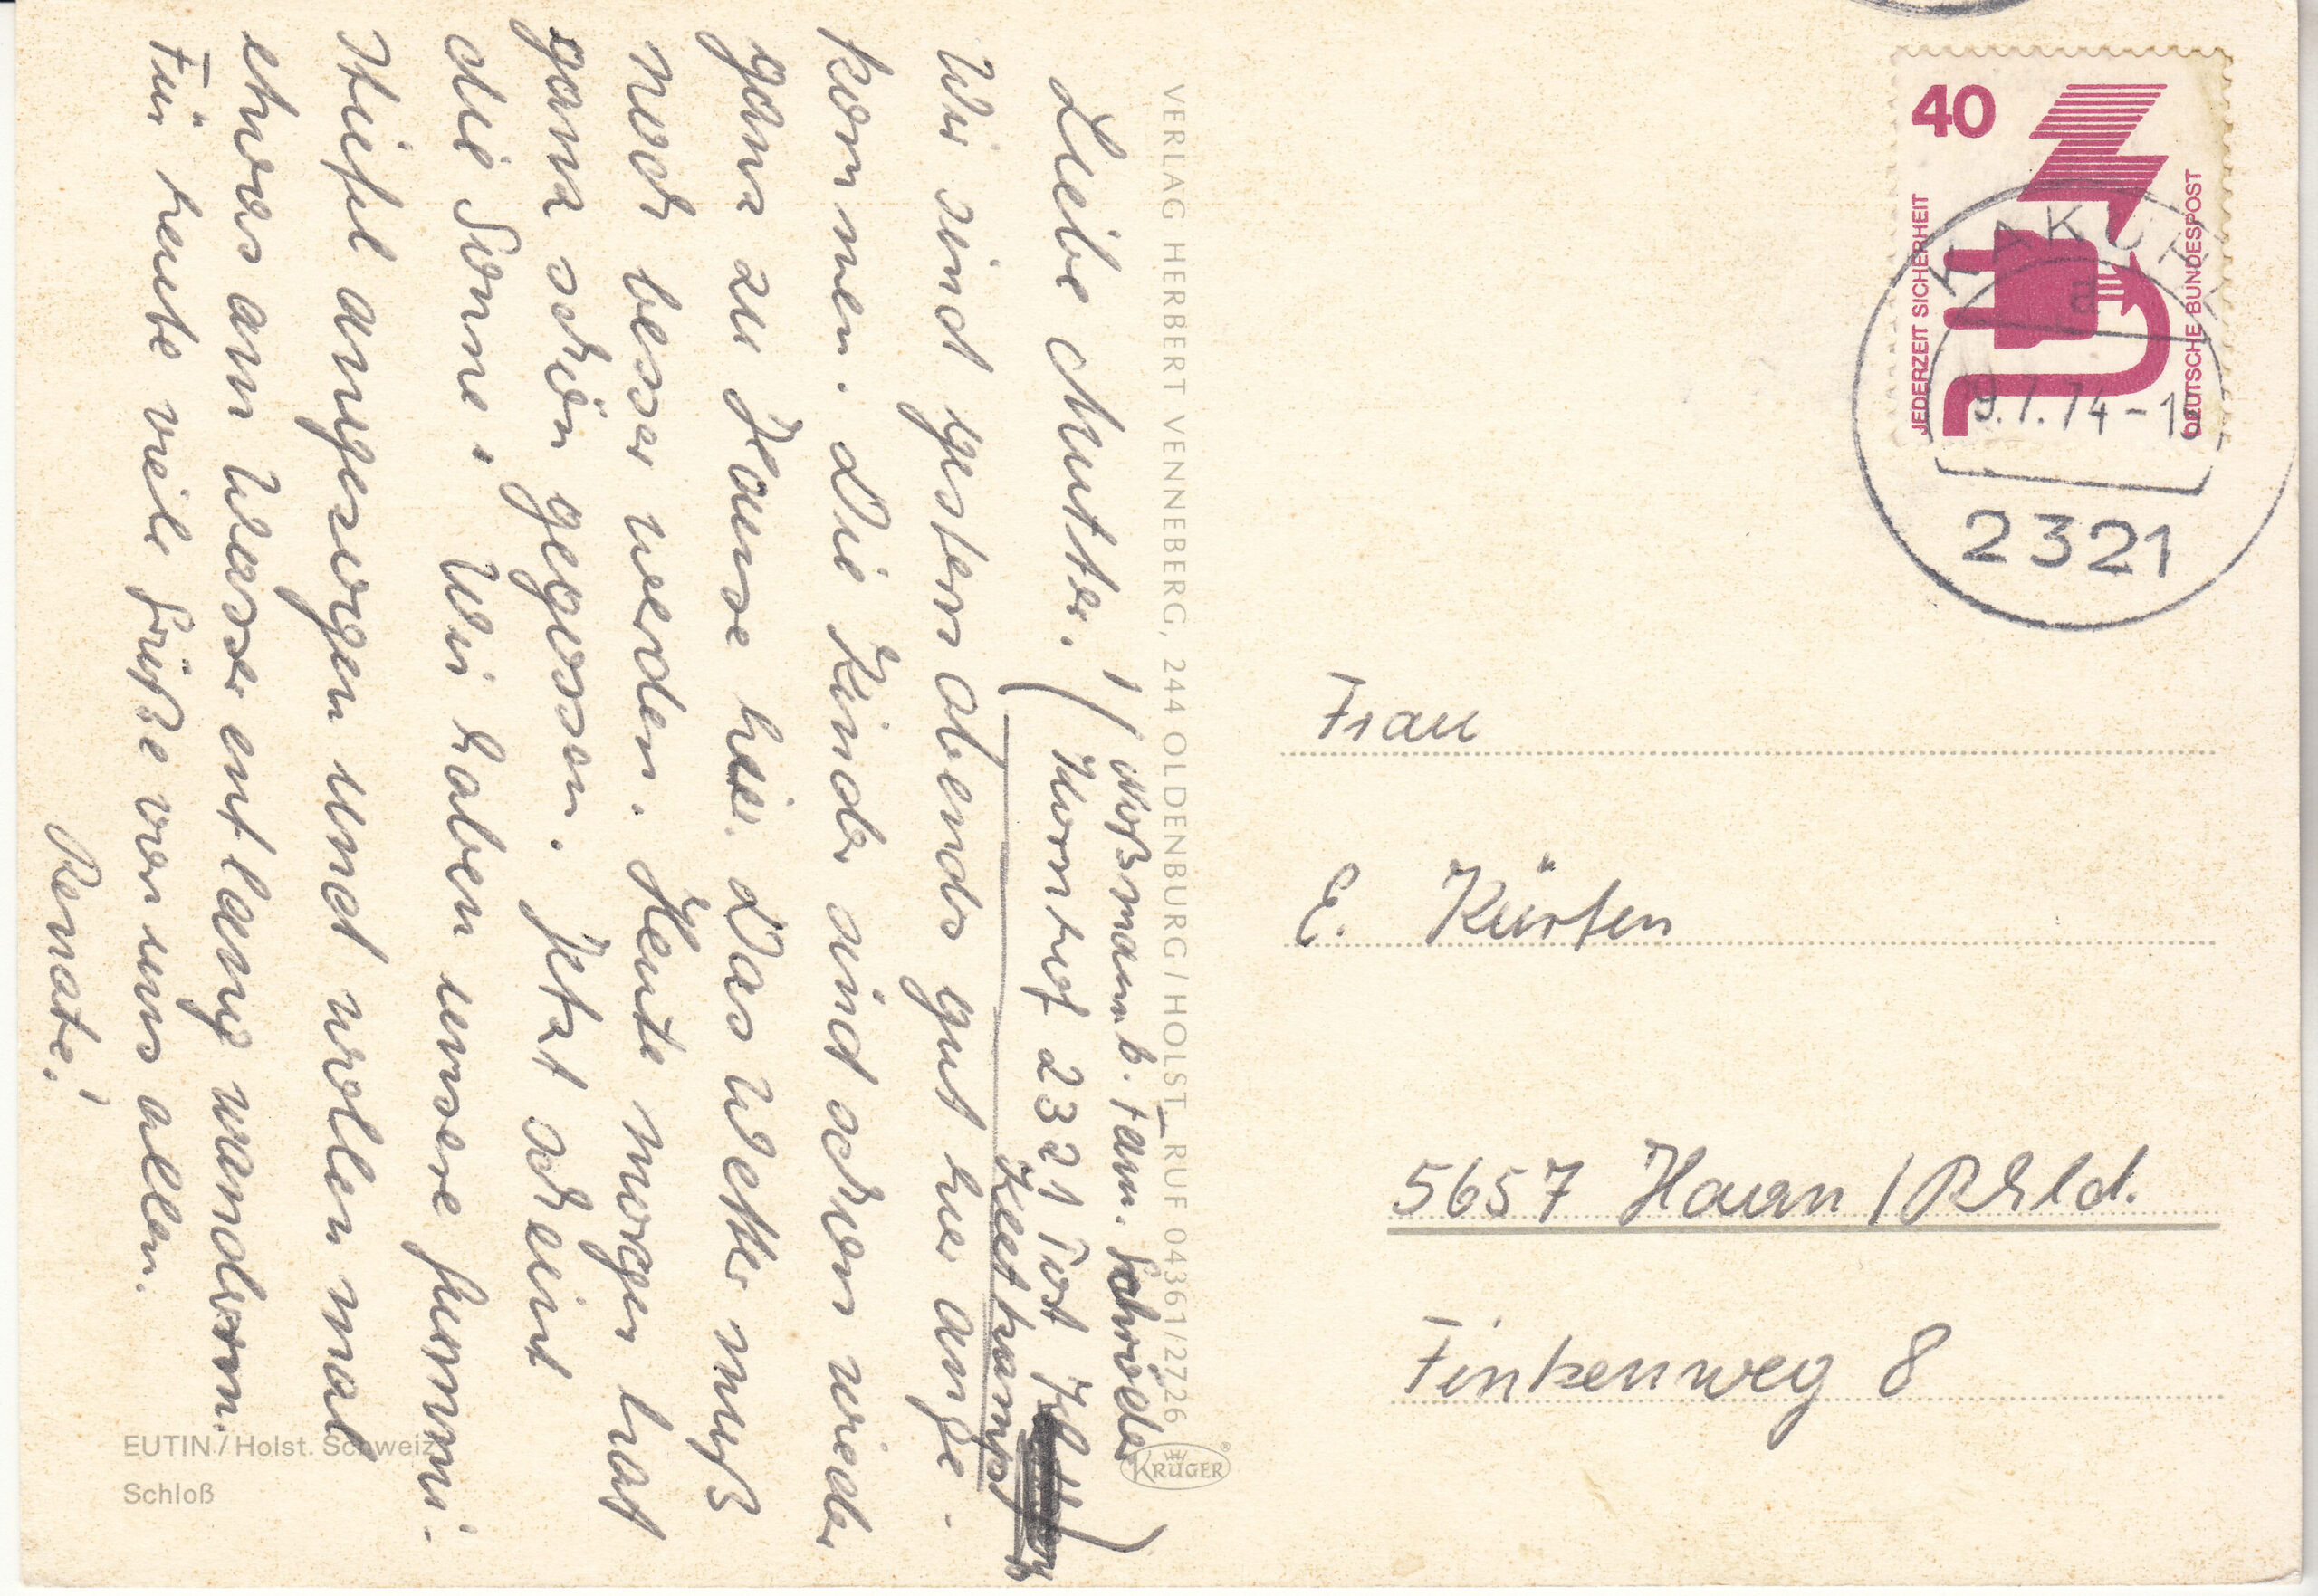 Liebe Mutter!
(Noßmann b. Fam. Schröder
Hornhof 2321 Post
Kleetkamp)
Wir sind gestern abends gut hier ange-
kommen. Die Kinder sind schon wieder
ganz zu Hause hier. Das Wetter muß
noch besser werden. Heute morgen hat
ganz schön gegossen. Jetzt scheint
die Sonne. Wir haben unsere Gummi-
stiefel angezogen und wollen mal
etwas am Wasser entlang wandern.
Für heute viele Grüße von uns allen.
Renate!
VERLAG HERBERT VENNEBERG, 244 OLDENBURG/HOLST_RUF 04361/2726
KRÜGER®
EUTIN/Holst. Schweiz
Schloß
40
JEDERZEIT SICHERHEIT
DEUTSCHE BUNDESPOST
a
.7.74-1
2321
Frau
E. Kürten
5657 Haan/Rhld.
Finkenweg 8